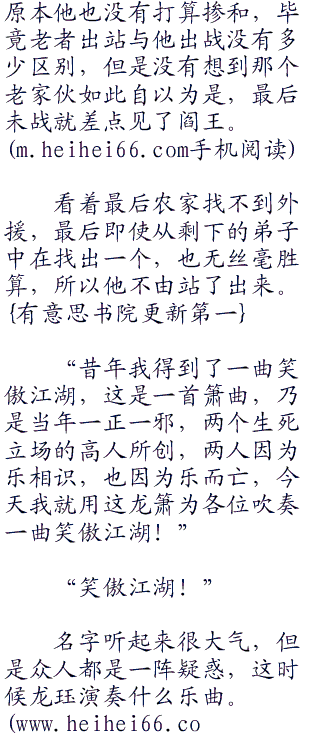 原本他也没有打算掺和，毕
竟老者出站与他出战没有多
少区别，但是没有想到那个
老家伙如此自以为是，最后
未战就差点见了阎王。
(m.heihei66.com手机阅读)
看着最后农家找不到外
援，最后即使从剩下的弟子
中在找出一个，也无丝毫胜
算，所以他不由站了出来。
{有意思书院更新第一}
“昔年我得到了一曲笑
傲江湖，这是一首箫曲，乃
是当年一正一邪，两个生死
立场的高人所创，两人因为
乐相识，也因为乐而亡，今
天我就用这龙箫为各位吹奏
一曲笑傲江湖！”
“笑傲江湖！”
名字听起来很大气，但
是众人都是一阵疑惑，这时
候龙珏演奏什么乐曲。
(www.heihei66.co